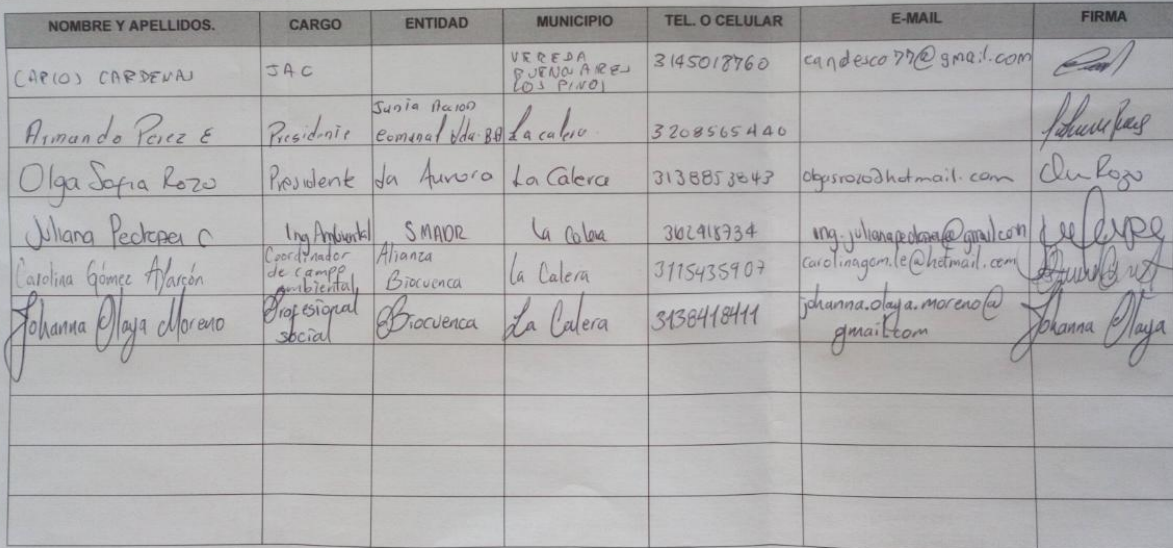 NOMBRE Y APELLIDOS. CARGO ENTIDAD MUNICIPIO TEL. O CELULAR E-MAIL FIRMA
CARLOS CARDENAS JAC VEREDA BUENOS AIRES LOS PINOS 3145018760 candesco77@gmail.com
Armando Perez E Presidente Junta Accion Comunal Vda. BA La calera 3208565440
Olga Sofia Rozo Presidente La Aurora La Calera 3138853843 olgasrozo@hotmail.com Rozo
Juliana Ing Ambiental SMADR La Calera 3102418734
Carolina Gómez Alarcón Coordinador de campo ambiental Alianza Biocuenca La Calera 3115435907 carolinagom.le@hotmail.com
Johanna Olaya Moreno Profesional social Biocuenca La Calera 3138418411 johanna.olaya.moreno@gmail.com Johanna Olaya